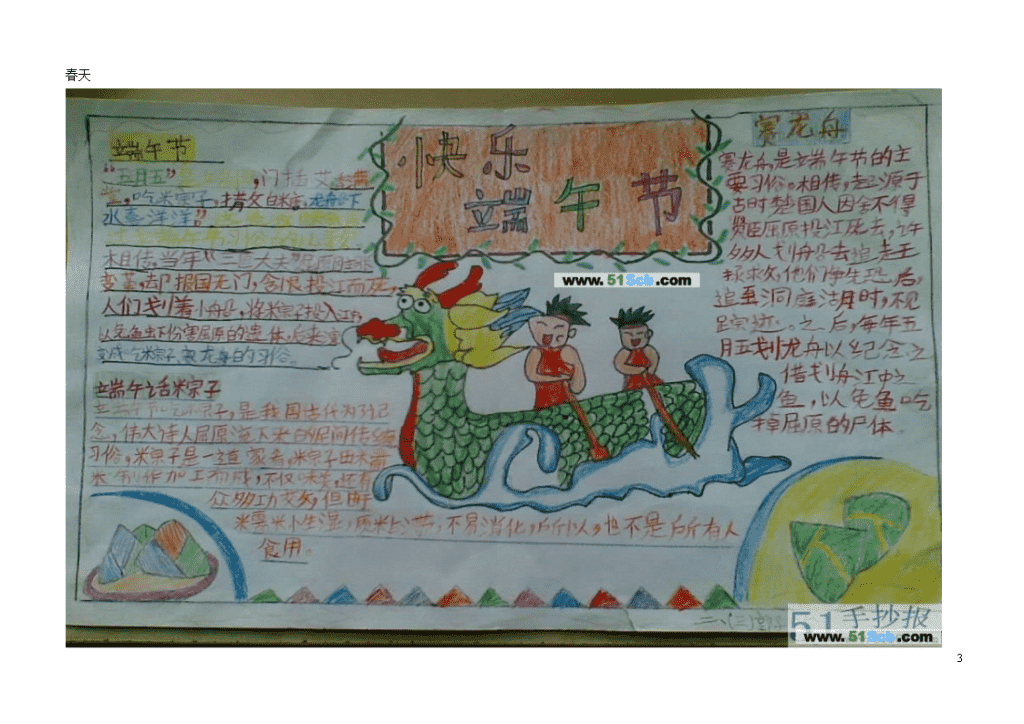 春天
快乐
端午节
端午节
"五月五"
,门插艾
,吃粽子,
水喜洋洋"
相传,当年"三闾大夫"屈原因
变革,却报国无门,含恨投江而死,
人们划着小船,将粽子投入江内
以免鱼虾份害屈原的遗体,后来演
变成吃粽子、赛龙舟的习俗。
端午话粽子
端午节吃粽子,是我国古代为了纪
念,伟大诗人屈原流下来的民间传统
习俗,粽子是一道
米制作加工而成,不仅味美,还有
众多功效,但由于
不易消化,所以,也不是所有人
食用。
赛龙舟
赛龙舟,是端午节的主
要习俗。相传,起源于
古时楚国人因舍不得
贤臣屈原投江死去,许
多人划船去追赶
拯救。他们争先恐后,
追至洞庭湖时,不见
踪迹。之后,每年五
月五划龙舟以纪念之
借划舟江中之
鱼,以免鱼吃
掉屈原的尸体。
www.51Scb.com
51手抄报
www.51Scb.com
3